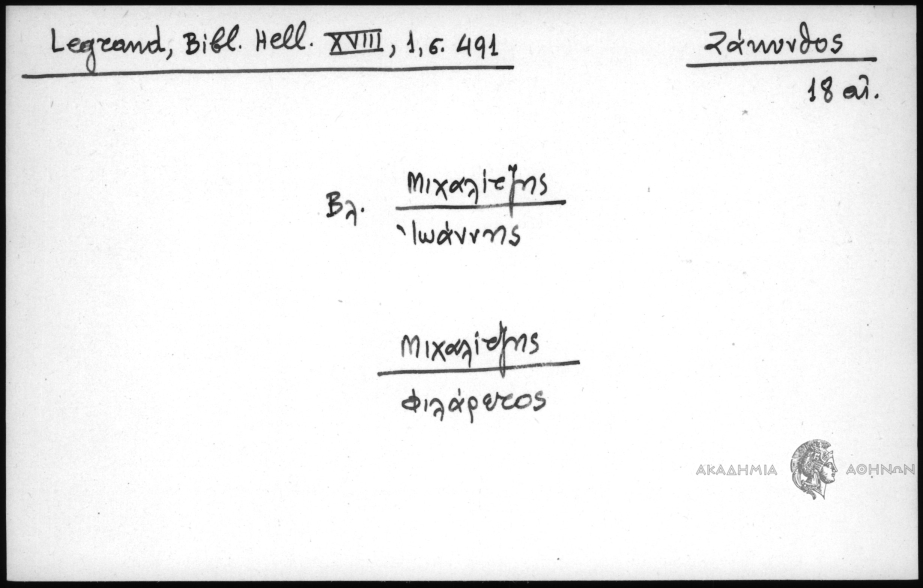 Legrand, Bibl. Hell. XVIII, 1, σ. 491
Ζάκυνθος
18 αἰ.
Βλ. Μιχαλίτζης
Ἰωάννης
Μιχαλίτζης
Φιλάρετος
ΑΚΑΔΗΜΙΑ ΑΘΗΝΩΝ